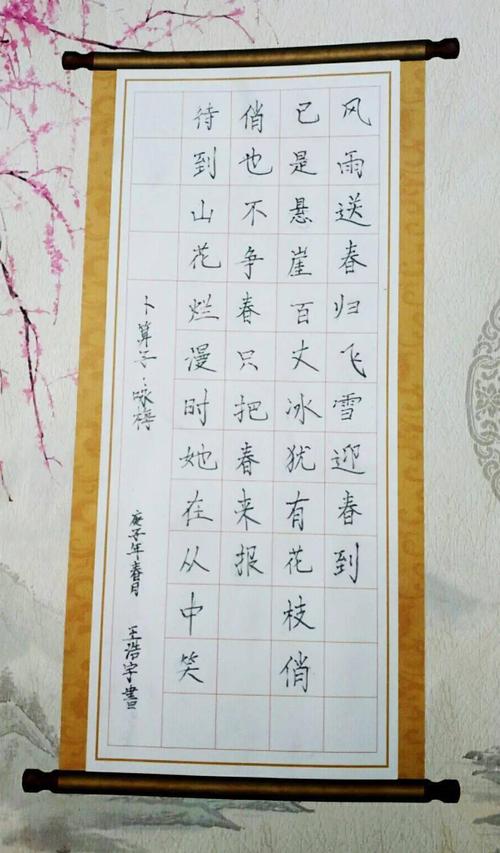 风雨送春归飞雪迎春到
已是悬崖百丈冰犹有花枝俏
俏也不争春只把春来报
待到山花烂漫时她在从中笑
卜算子·咏梅
庚子年春月 王浩宇書